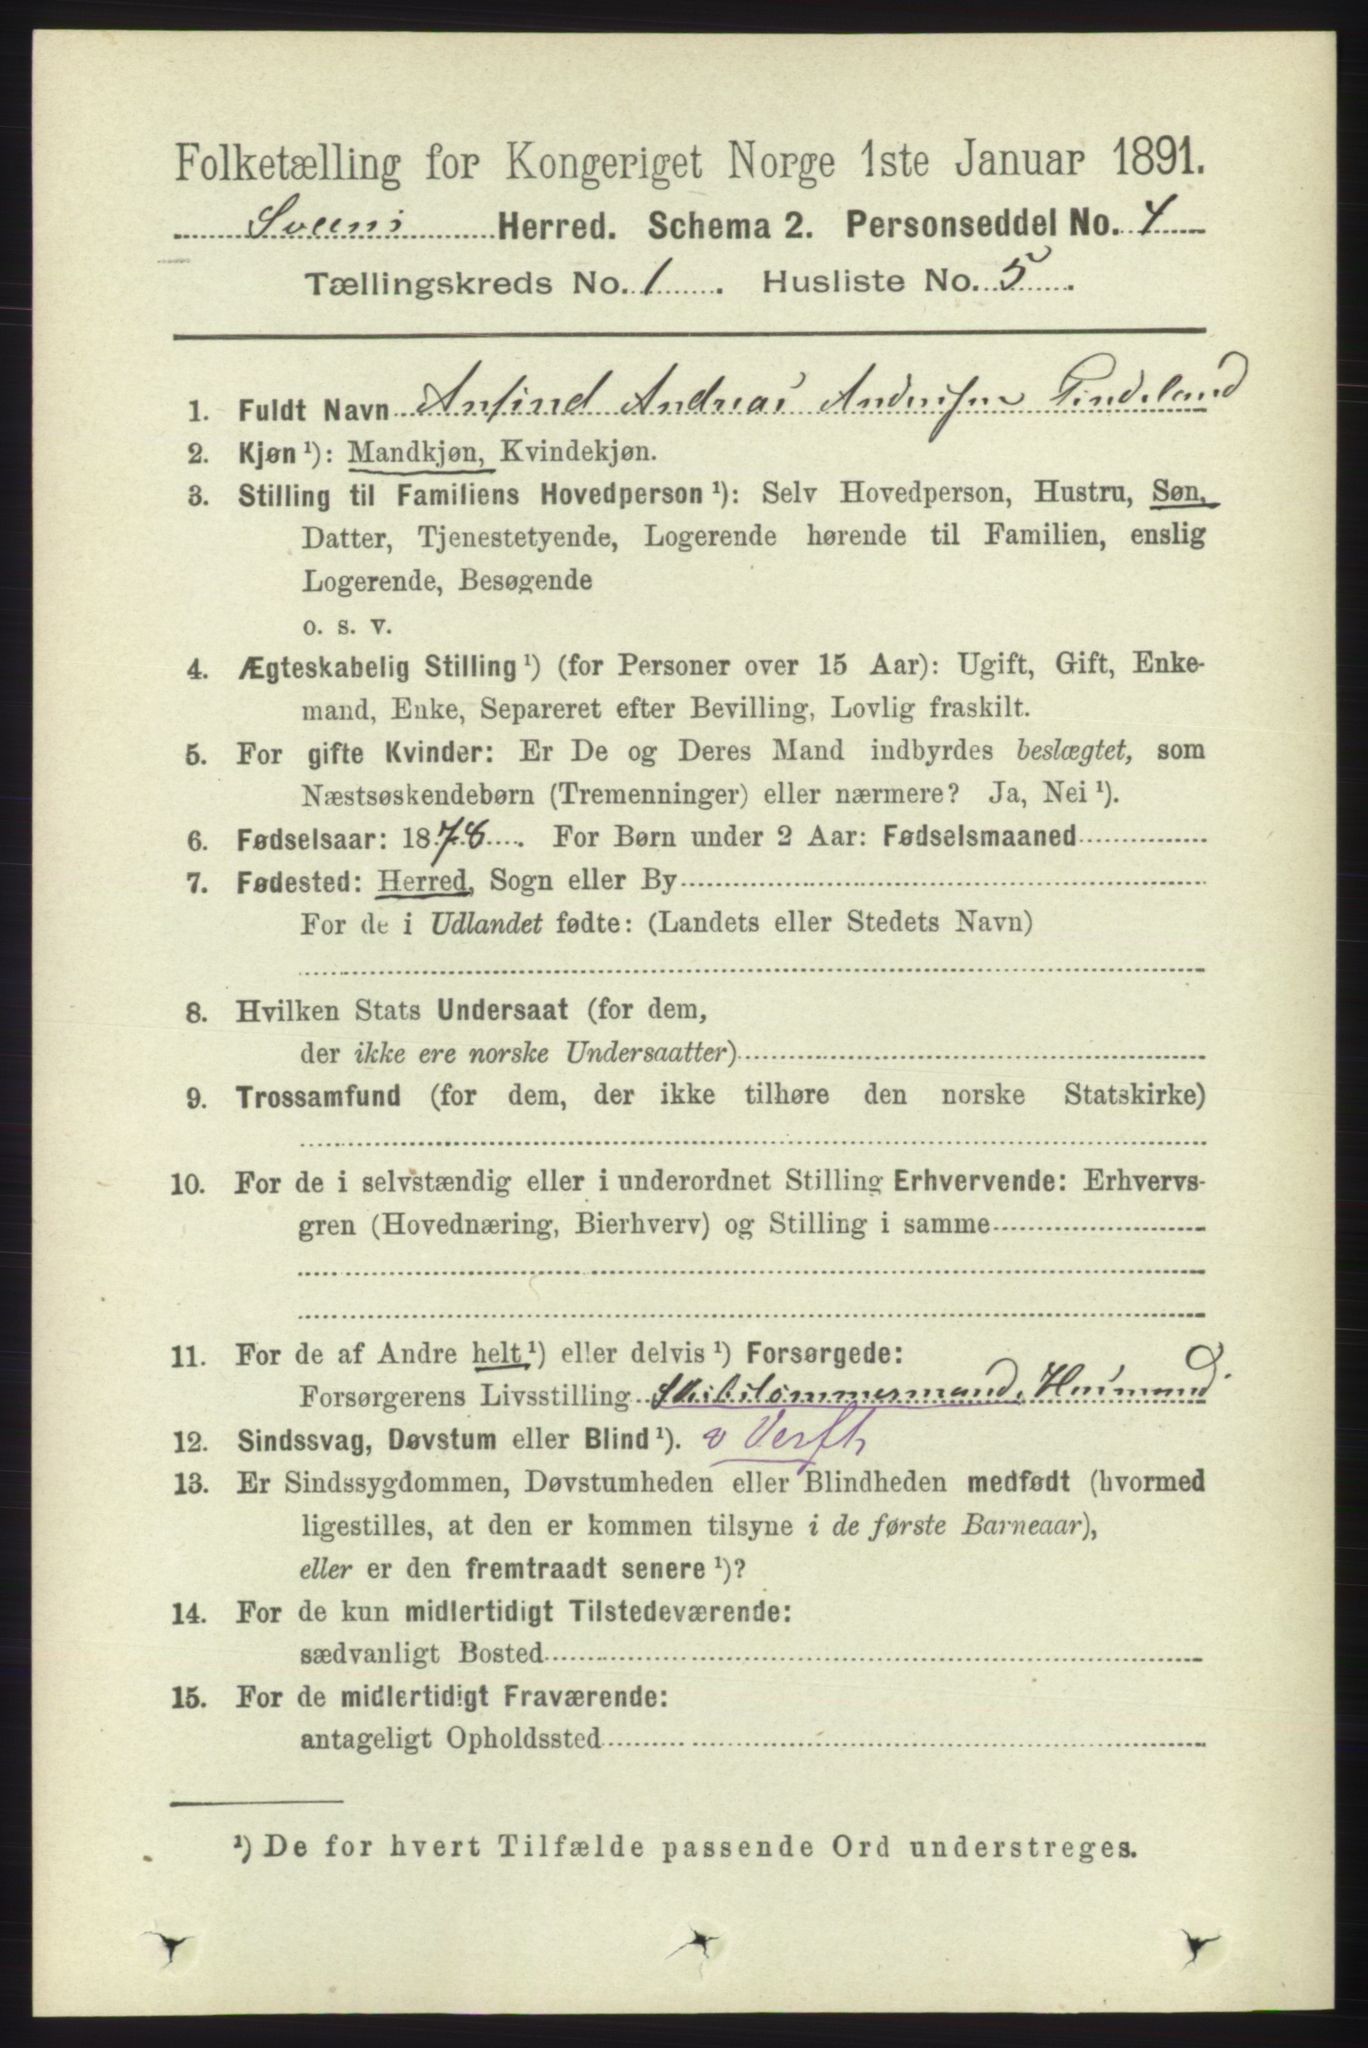 Folketælling for Kongeriget Norge 1ste Januar 1891.
Sveens Herred. Schema 2. Personseddel No. 4
Tællingskreds No. 1. Husliste No. 5.
1. Fuldt Navn Anfind Andreas Andersen Tindeland
2. Kjøn ¹): Mandkjøn, Kvindekjøn.
3. Stilling til Familiens Hovedperson ¹): Selv Hovedperson, Hustru, Søn,
Datter, Tjenestetyende, Logerende hørende til Familien, enslig
Logerende, Besøgende
o. s. v.
4. Ægteskabelig Stilling ¹) (for Personer over 15 Aar): Ugift, Gift, Enke-
mand, Enke, Separeret efter Bevilling, Lovlig fraskilt.
5. For gifte Kvinder: Er De og Deres Mand indbyrdes beslægtet, som
Næstsøskendebørn (Tremenninger) eller nærmere? Ja, Nei ¹).
6. Fødselsaar: 1878. For Børn under 2 Aar: Fødselsmaaned
7. Fødested: Herred, Sogn eller By
For de i Udlandet fødte: (Landets eller Stedets Navn)
8. Hvilken Stats Undersaat (for dem,
der ikke ere norske Undersaatter)
9. Trossamfund (for dem, der ikke tilhøre den norske Statskirke)
10. For de i selvstændig eller i underordnet Stilling Erhvervende: Erhvervs-
gren (Hovednæring, Bierhverv) og Stilling i samme
11. For de af Andre helt ¹) eller delvis ¹) Forsørgede:
Forsørgerens Livsstilling Skibstømmermand, Husmand
12. Sindssvag, Døvstum eller Blind ¹). v Verft
13. Er Sindssygdommen, Døvstumheden eller Blindheden medfødt (hvormed
ligestilles, at den er kommen tilsyne i de første Barneaar),
eller er den fremtraadt senere ¹)?
14. For de kun midlertidigt Tilstedeværende:
sædvanligt Bosted
15. For de midlertidigt Fraværende:
antageligt Opholdssted
¹) De for hvert Tilfælde passende Ord understreges.